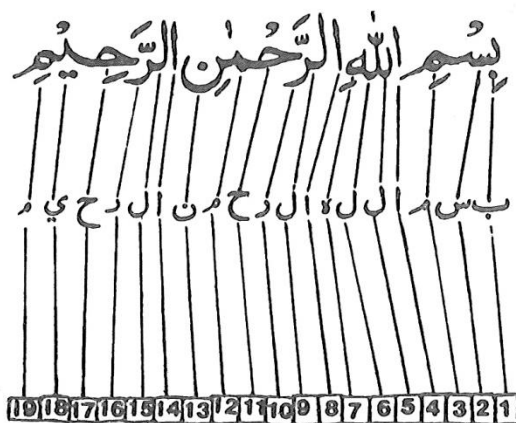 بِسْمِ اللّٰهِ الرَّحْمٰنِ الرَّحِيْمِ
ب س م ا ل ل ه ا ل ر ح م ن ا ل ر ح ي م
19 18 17 16 15 14 13 12 11 10 9 8 7 6 5 4 3 2 1